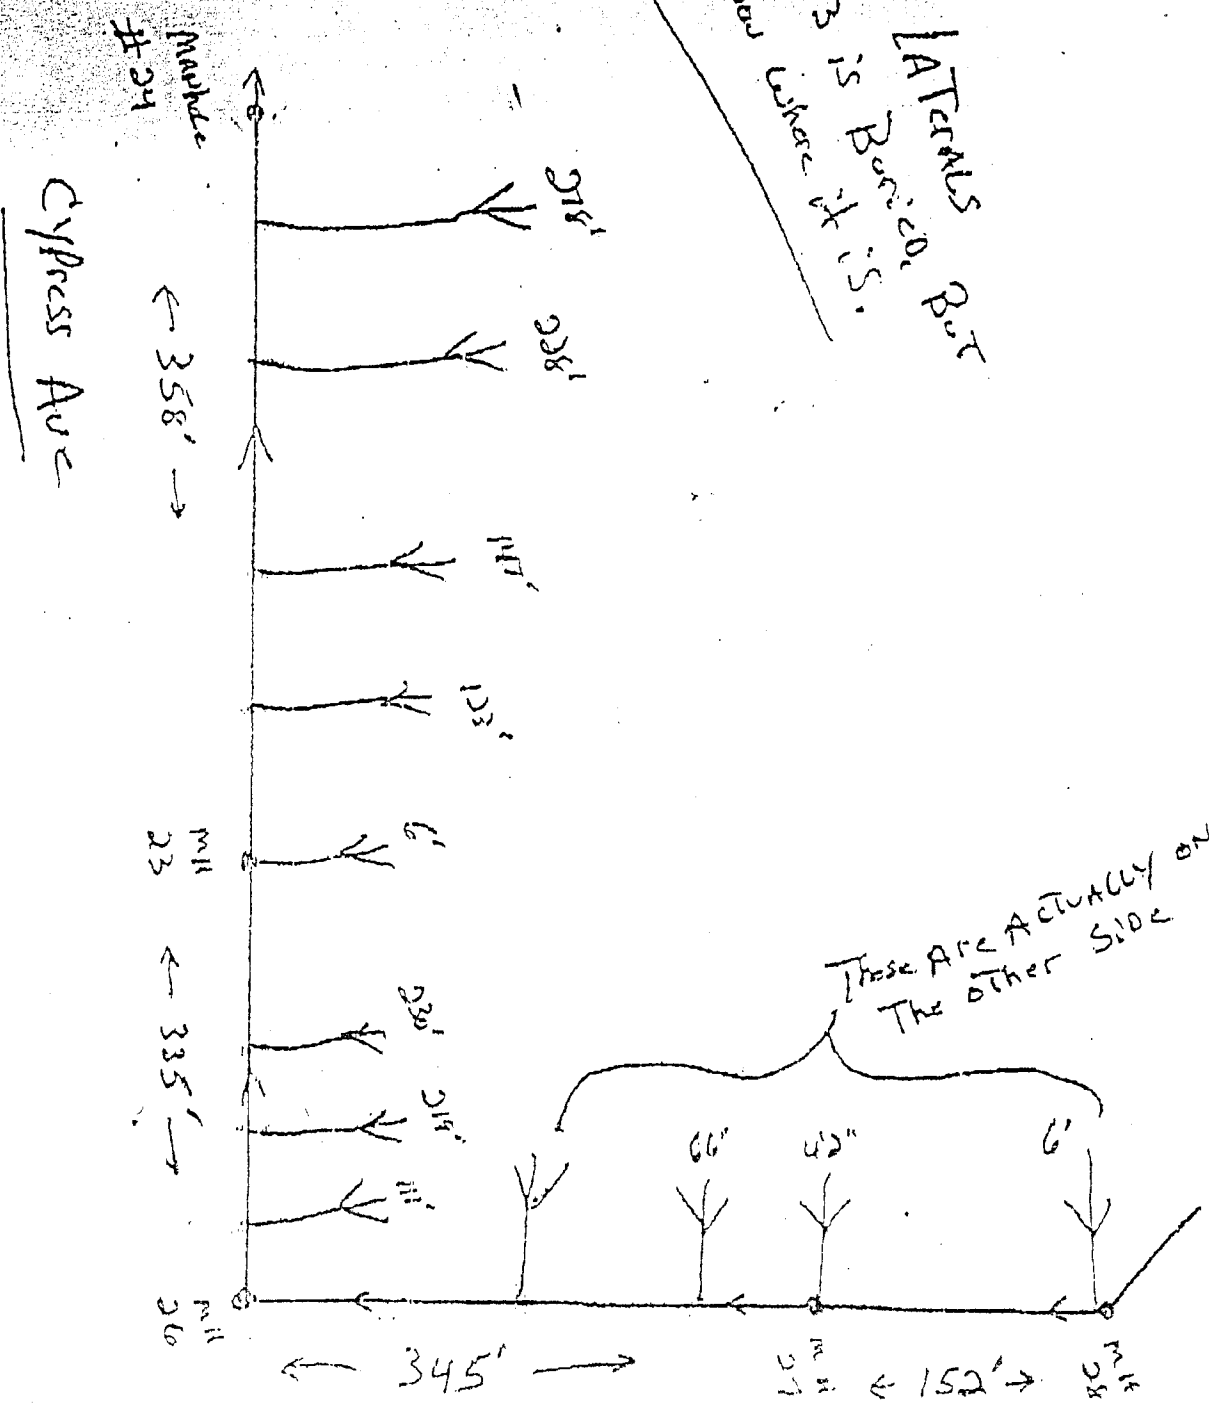 LATERALS
3 is Buried, But
ow where it is.
MANhole
#24
Cypress Ave
← 358' →
278'
228'
147'
123'
6'
MH
23
← 335' →
230'
219'
111'
MH
26
These Are Actually on
The other Side
66"
42"
6'
← 345' →
MH
27
← 152' →
MH
28